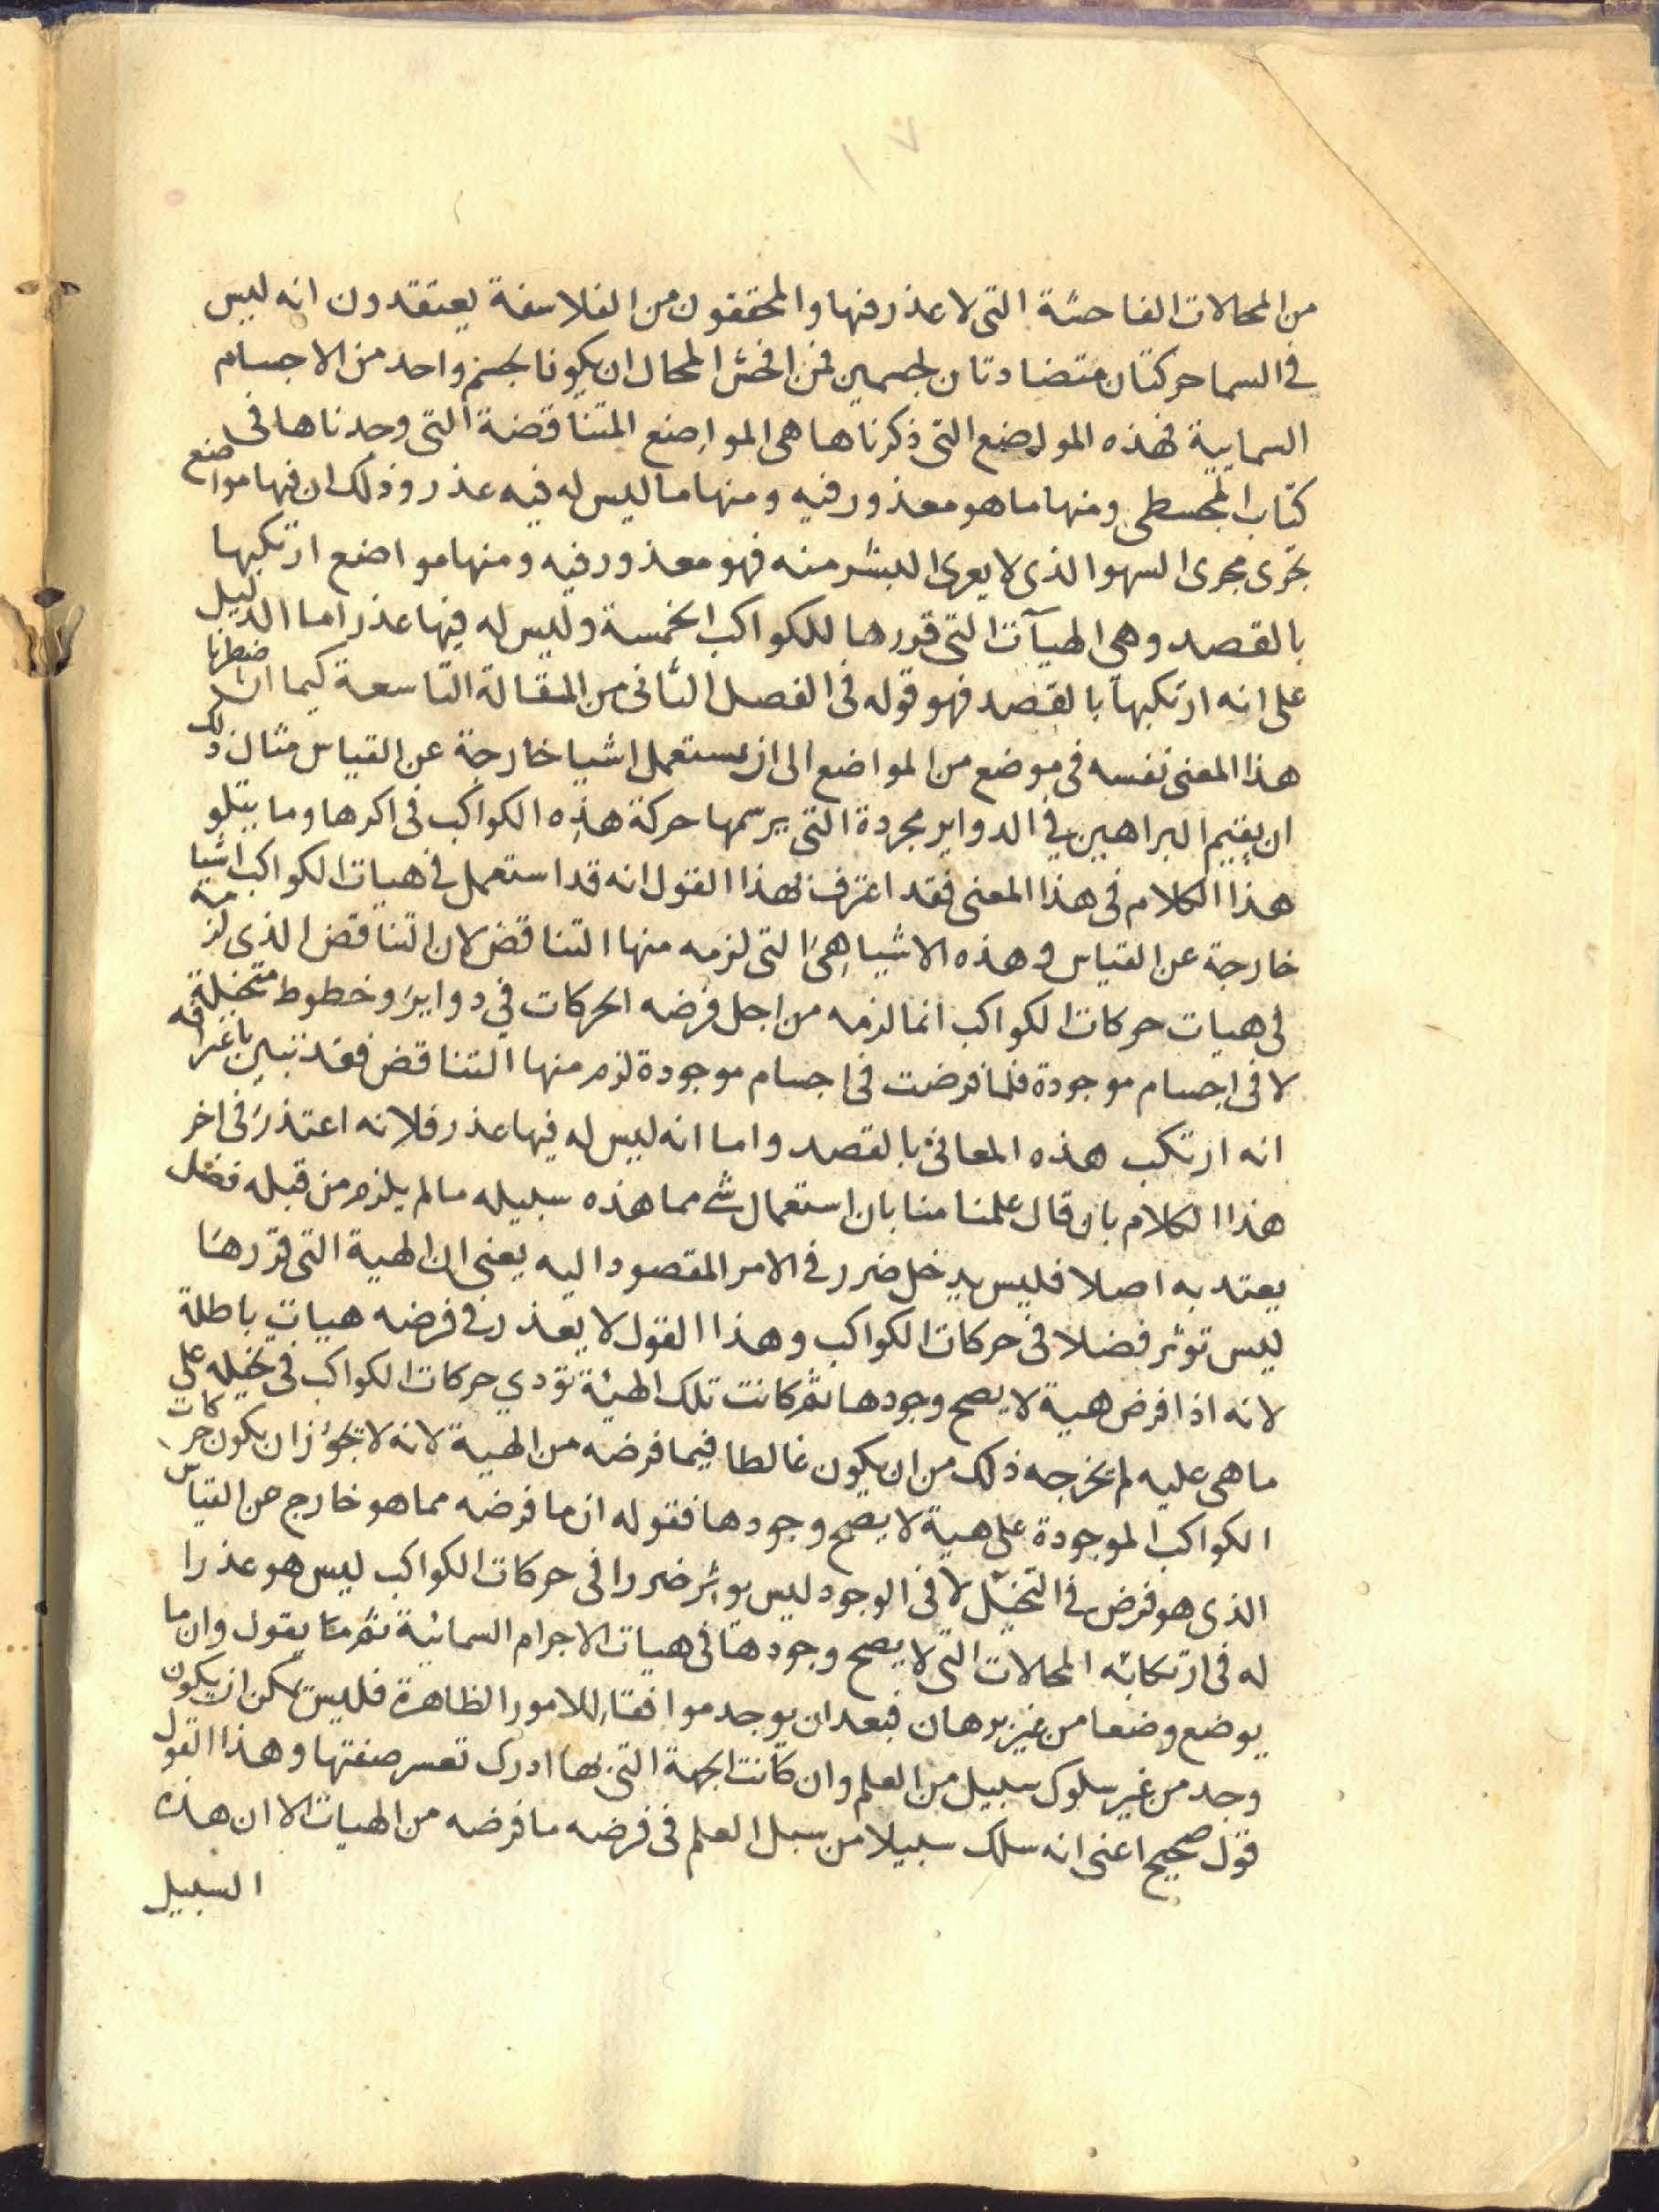 ١٧
من المحالات الفاحشة التى لا عذر فيها والمحققون من الفلاسفة يعتقدون انه ليس
فى السما حركتان متضادتان لجسمين فمن افحش المحال ان يكونا لجسم واحد من الاجسام
السمايية فهذه المواضع التى ذكرناها هى المواضع المتناقضة التى وجدناها فى
كتاب المجسطى ومنها ما هو معذور فيه ومنها ما ليس له فيه عذر وذلك ان فيها مواضع
تجرى مجرى السهو الذى لا يعرى البشر منه فهو معذور فيه ومنها مواضع ارتكبها
بالقصد وهى الهيآت التى قررها للكواكب الخمسة وليس له فيها عذر اما الدليل
على انه ارتكبها بالقصد فهو قوله فى الفصل الثانى من المقالة التاسعة كيما ان اضطرنا
هذا المعنى نفسه فى موضع من المواضع الى ان نستعمل اشيا خارجة عن القياس مثال ذلك
ان نقيم البراهين فى الدواير مجردة التى يرسمها حركة هذه الكواكب فى اكرها وما يتلو
هذا الكلام فى هذا المعنى فقد اعترف بهذا القول انه قد استعمل فى هيات الكواكب اشيا
خارجة عن القياس وهذه الاشيا هى التى لزمه منها التناقض لان التناقض الذى لزمه
فى هيات حركات الكواكب انما لزمه من اجل فرضه الحركات فى دواير وخطوط متخيلة
لا فى اجسام موجودة فلما فرضت فى اجسام موجودة لزم منها التناقض فقد تبين باعترافه
انه ارتكب هذه المعانى بالقصد واما انه ليس له فيها عذر فلانه اعتذر فى اخر
هذا الكلام بان قال علمنا منا بان استعمال شى مما هذه سبيله ما لم يلزم من قبله فضل
يعتد به اصلا فليس يدخل ضرر فى الامر المقصود اليه يعنى ان الهية التى قررها
ليس توثر فضلا فى حركات الكواكب وهذا القول لا يعذر فى فرضه هيات باطلة
لانه اذا فرض هية لا يصح وجودها ثم كانت تلك الهيئة تؤدي حركات الكواكب فى تخيله على
ما هى عليه لم يخرجه ذلك من ان يكون غالطا فيما فرضه من الهية لانه لا يجوز ان يكون حركات
الكواكب الموجودة على هية لا يصح وجودها فقوله ان ما فرضه مما هو خارج عن القياس
الذى هو فرض فى التخيل لا فى الوجود ليس يوثر ضررا فى حركات الكواكب ليس هو عذرا
له فى ارتكابه المحالات التى لا يصح وجودها فى هيات الاجرام السمائية ثم ما يقول وان ما
يوضع وضعا من غير برهان فبعد ان يوجد موافقا للامور الظاهرة فليس يمكن ان يكون
وجد من غير سلوك سبيل من العلم وان كانت الجهة التى بها ادرك تعسر صفتها وهذا القول
قول صحيح اعنى انه سلك سبيلا من سبل العلم فى فرضه ما فرضه من الهيات الا ان هذه
السبيل